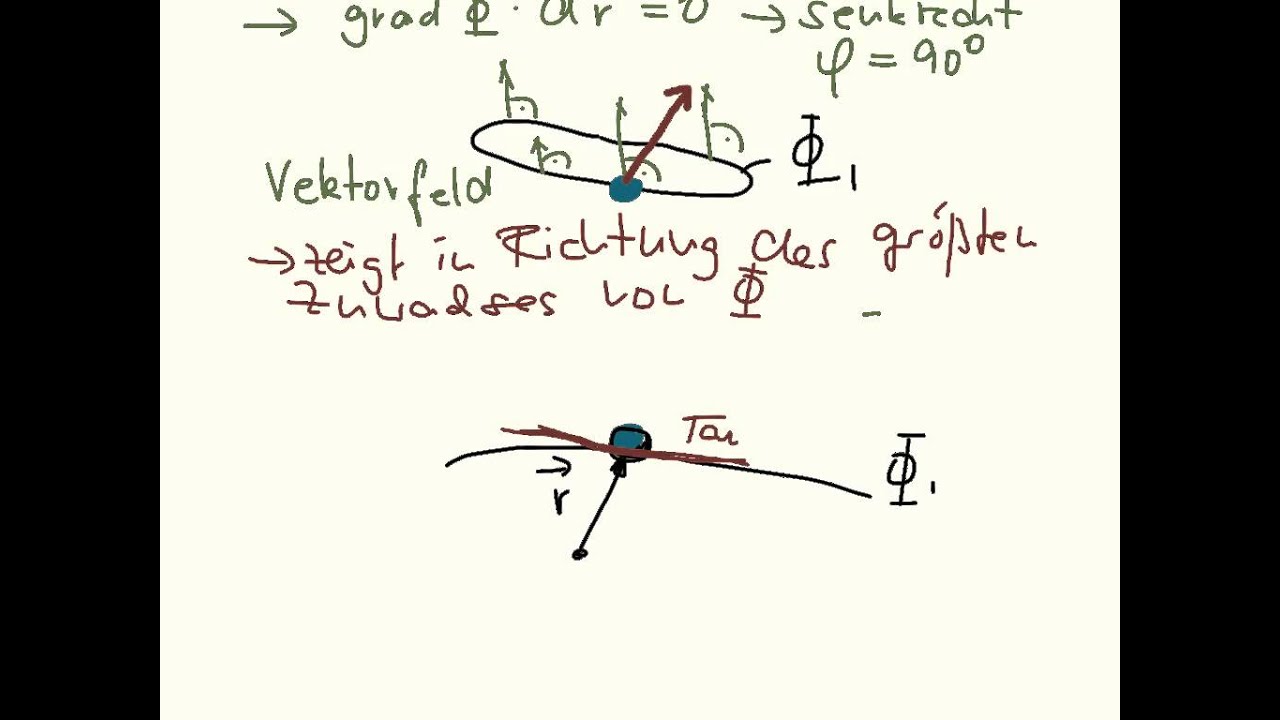 → grad Φ · dr = 0 → senkrecht
φ = 90°
Φ₁
Vektorfeld
→ zeigt in Richtung des größten
Zuwachses von Φ
Tan
r⃗
Φ₁